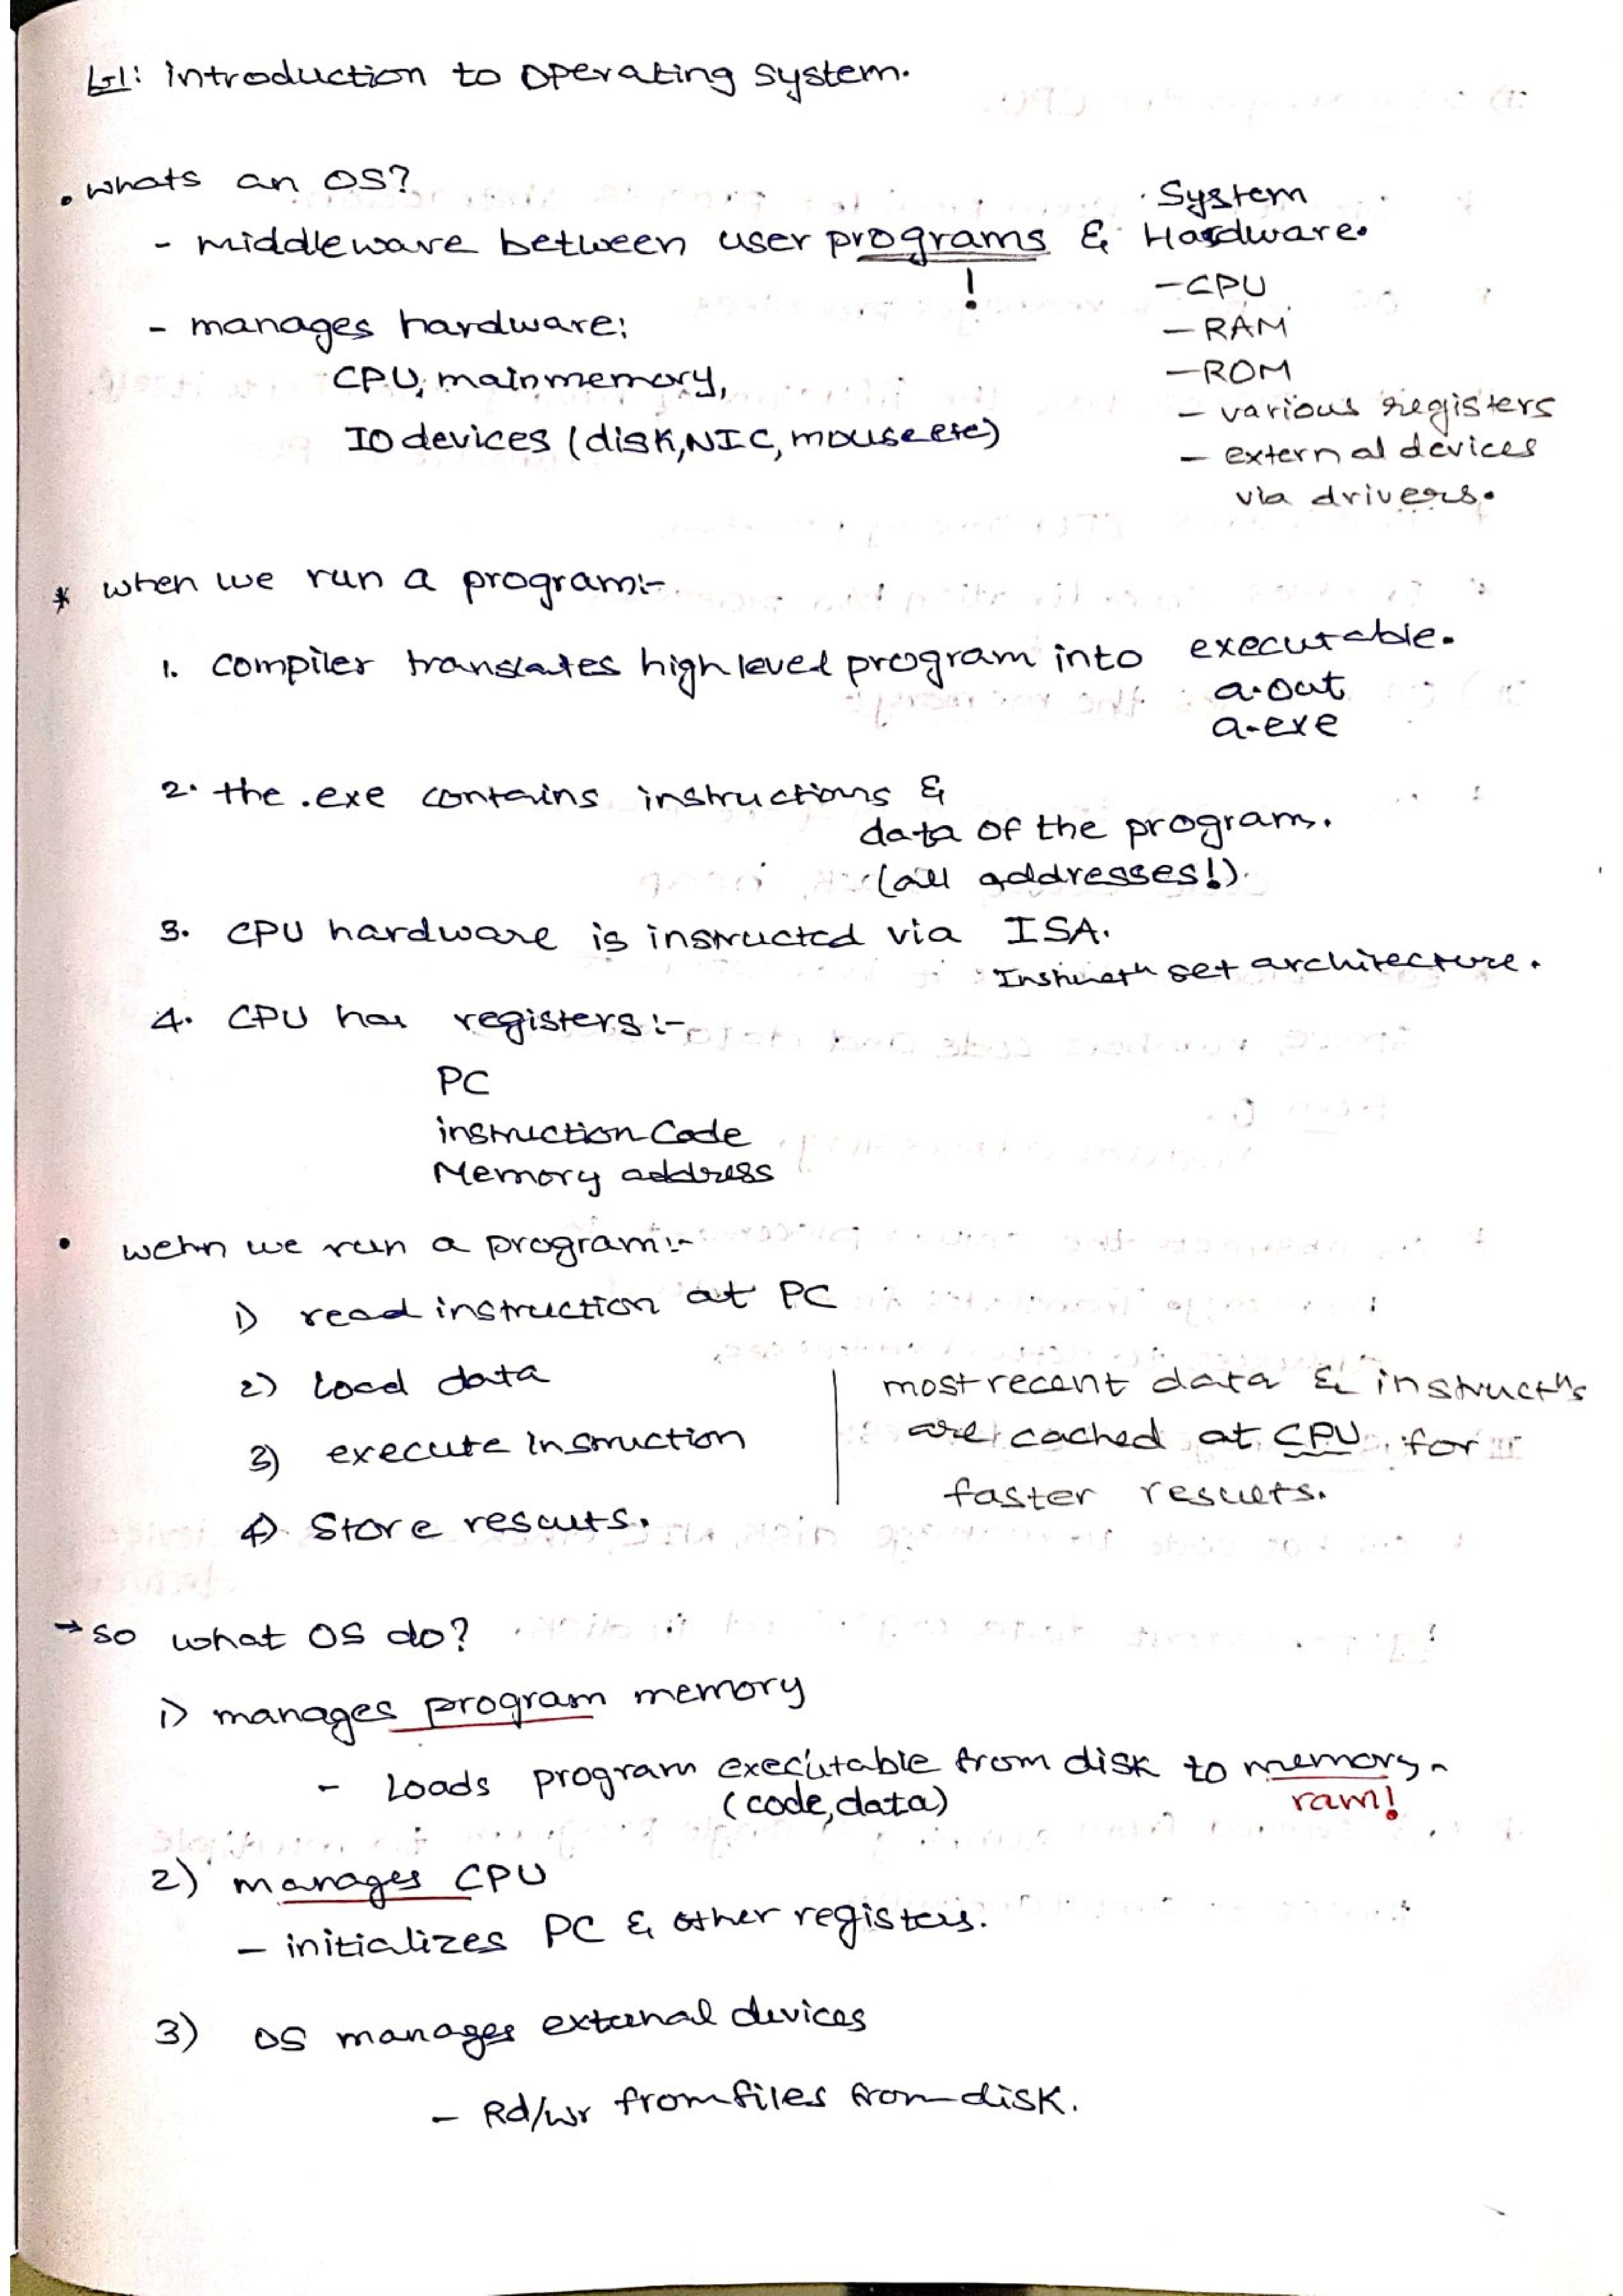 L-1: introduction to operating system.
. whats an OS?
- middleware between user programs & System Hardware.
!
- CPU
- RAM
- ROM
- various registers
- external devices
via drivers.
- manages hardware:
CPU, main memory,
IO devices (disk, NIC, mouse etc)
* when we run a program:-
1. compiler translates high level program into executable.
a.out
a.exe
2. the .exe contains instructions &
data of the program.
(all addresses!).
3. CPU hardware is instructed via ISA.
Instructn set architecture.
4. CPU has registers:-
PC
instruction Code
Memory address
• wehn we run a program:-
1) read instruction at PC
2) Load data
3) execute instruction
4) Store results.
most recent data & instructns
are cached at CPU for
faster results.
→ so what OS do?
1) manages program memory
- Loads program executable from disk to memory.
(code, data) ram!
2) manages CPU
- initializes PC & other registers.
3) OS manages external devices
- Rd/wr from files from disk.